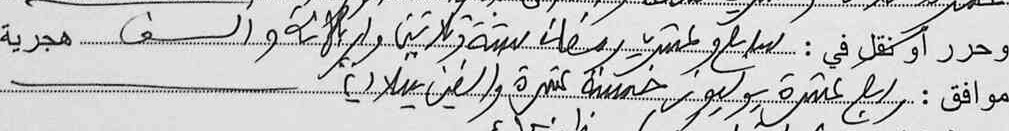 وحرر أو نقل في : سابع وعشرين رمضان ستة وثلاثين وأربعمائة وألف هجرية
موافق : رابع عشرة يوليوز خمسة عشرة وألفين ميلادية